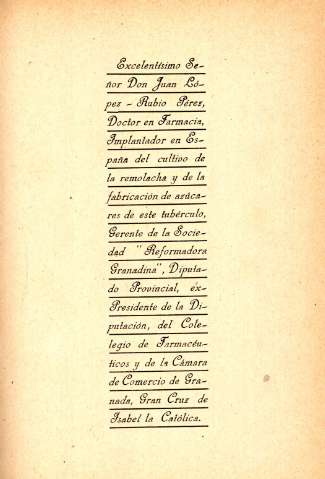 Excelentísimo Se-
ñor Don Juan Ló-
pez - Rubio Pérez,
Doctor en Farmacia,
Implantador en Es-
paña del cultivo de
la remolacha y de la
fabricación de azúca-
res de este tubérculo,
Gerente de la Socie-
dad "Reformadora
Granadina", Diputa-
do Provincial, ex-
Presidente de la Di-
putación, del Cole-
legio de Farmacéu-
ticos y de la Cámara
de Comercio de Gra-
nada, Gran Cruz de
Isabel la Católica.